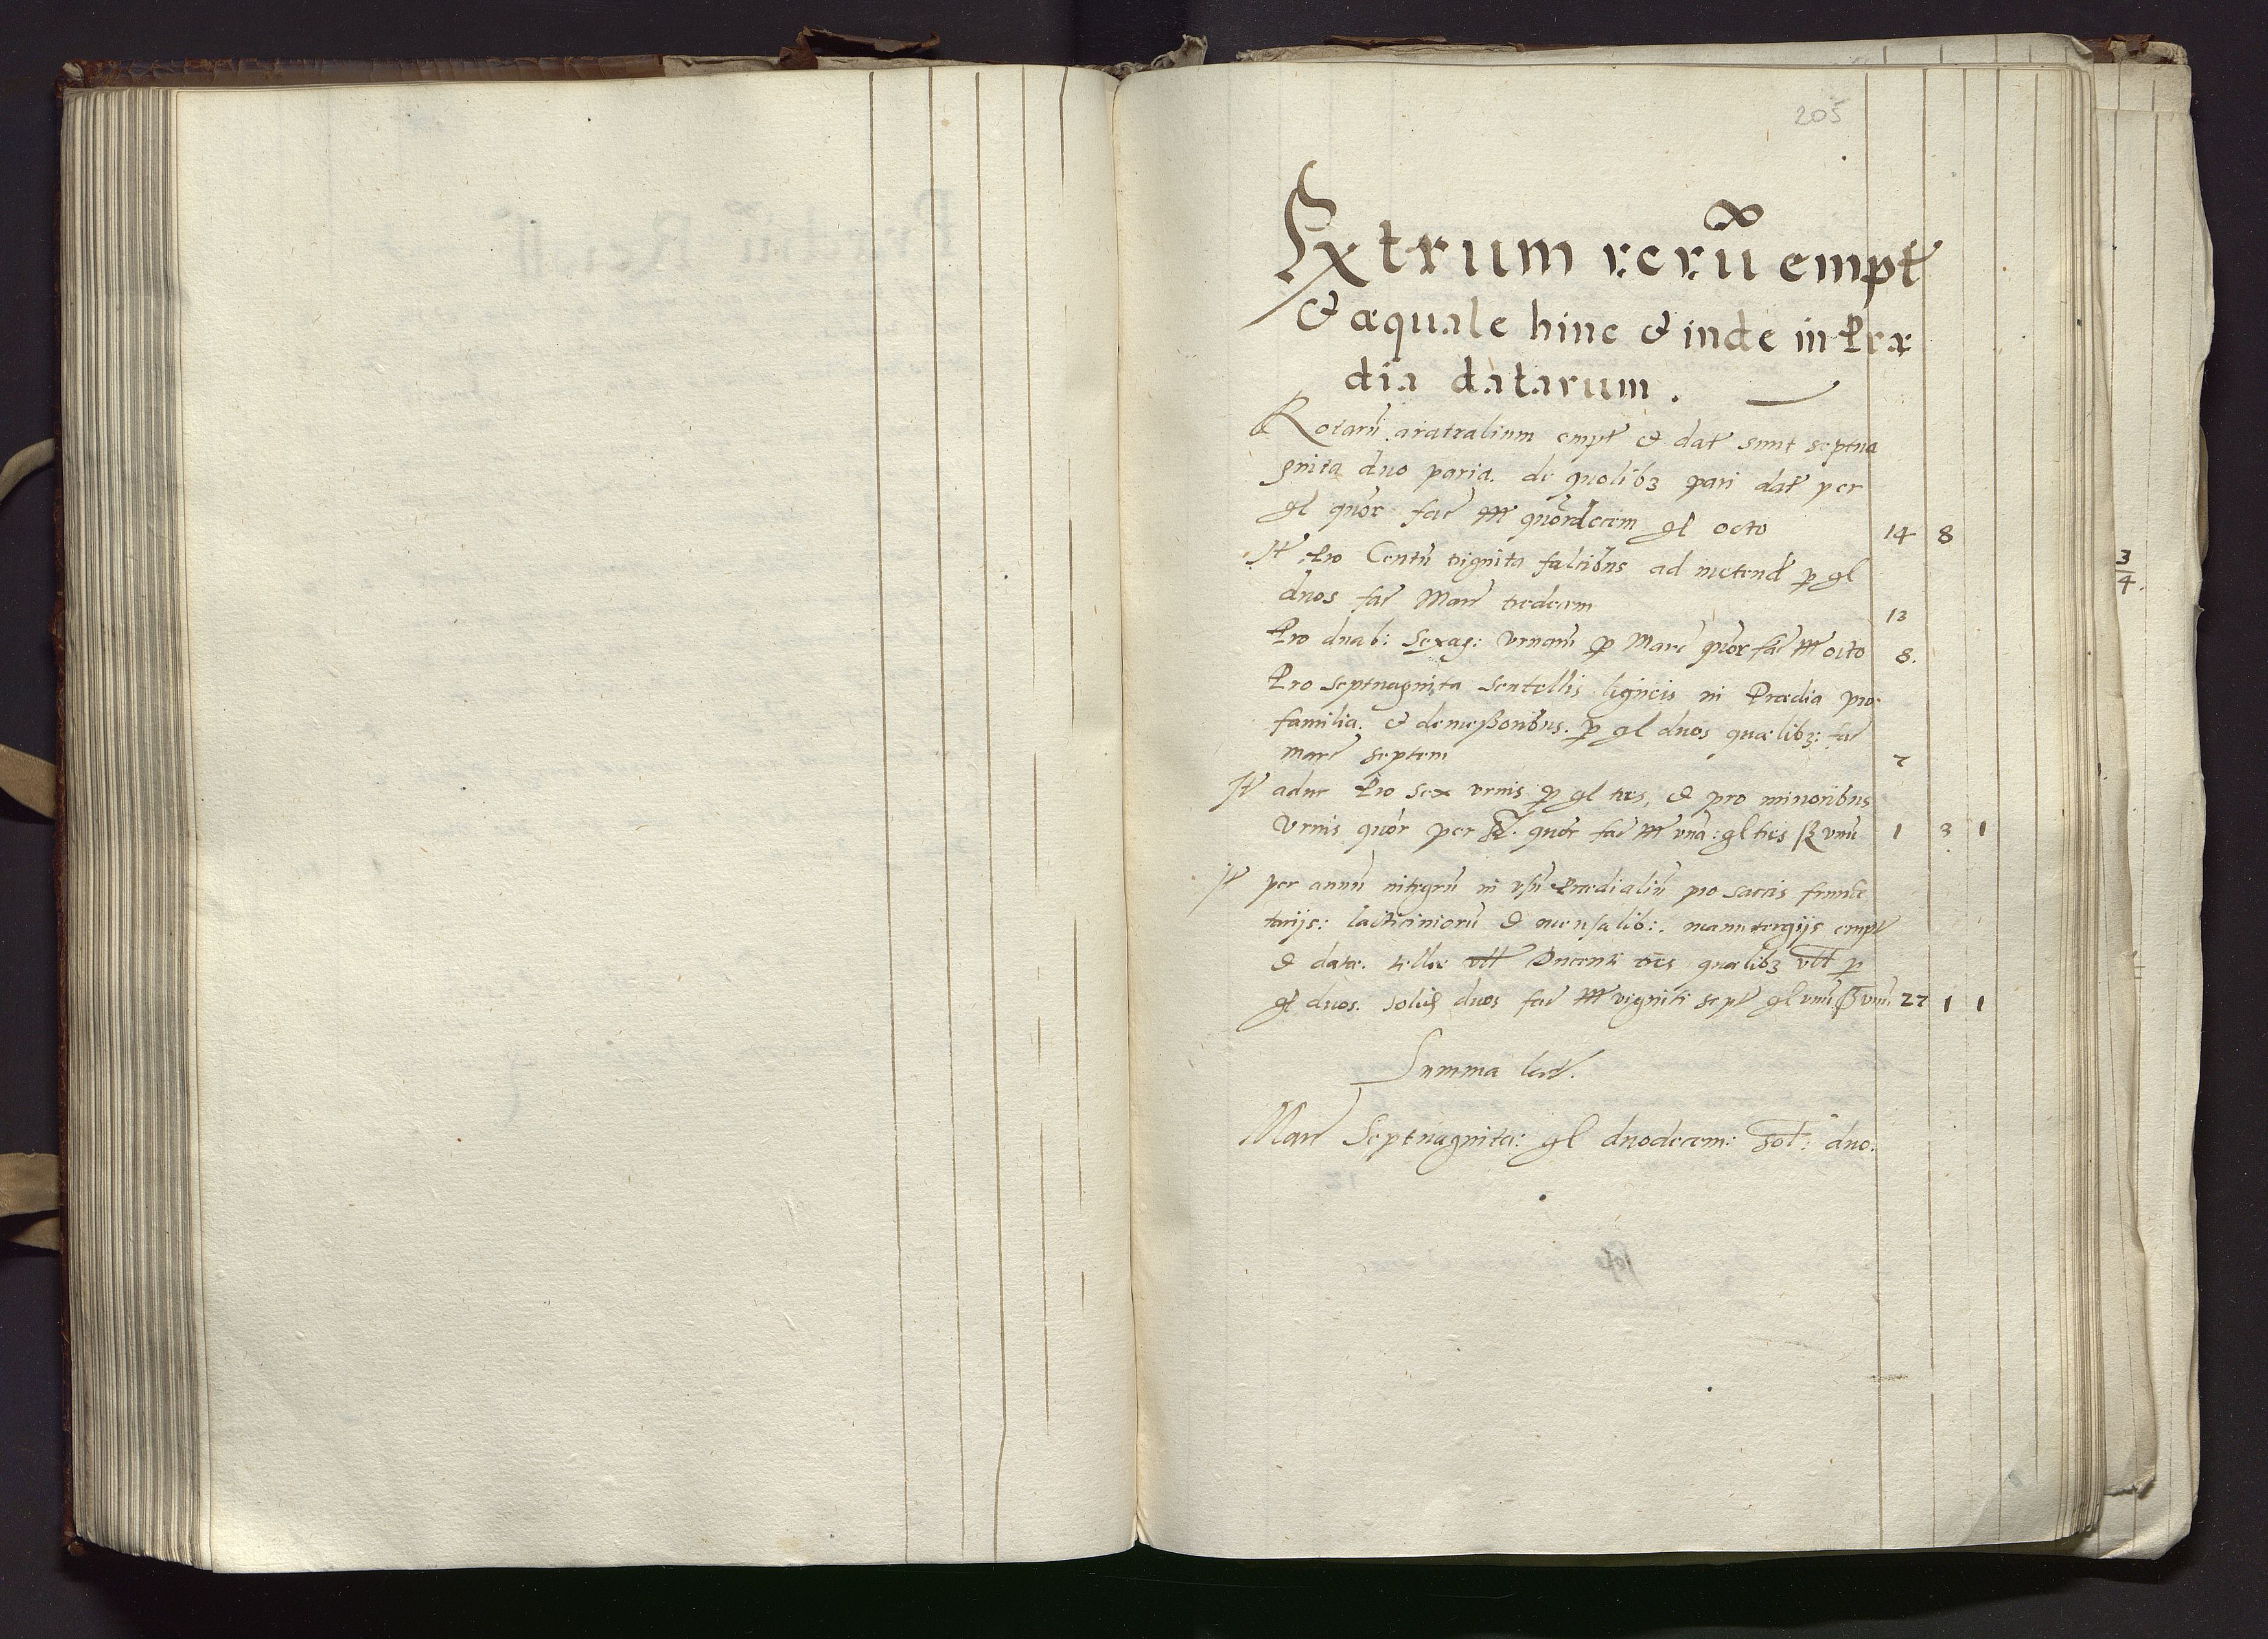 205
Extrum rerũ empt
& æquale hinc & inde in Præ
dia datarum.
Rotarũ aratralium empt & dat sunt septua
ginta duo paria. de quolibꝫ pari dat per
gl quõr fac M quõrdecem gl octo 14 8
It Pro Centũ triginta falcibus ad metend p gl
duos fac Marc tredecem 13
Pro duab: Sexag: Urnarũ p Marc quõr fac M octo 8.
Pro septuaginta scutellis ligneis in Prædia pro
familia: & demessoribus. p gl duos quælibꝫ: fac
marc septem 7
It aduc Pro sex urnis p gl tres, & pro minoribus
Urnis quõr per quõr fac M unã: gl tres ß unũ 1 3 1
It per annũ integrũ in usũ Prædialiũ pro saccis frumẽ
tarijs: lacticiniorũ & mensalib: manutergijs empt
& datæ. tellæ ult Ducenti tres quælibꝫ ult p
gl duos. solid duos fac M viginti sept gl unũ ß unũ 27 1 1
Summa lat.
Marc Septuaginta: gl duodecem: sol: duo:
3
4.